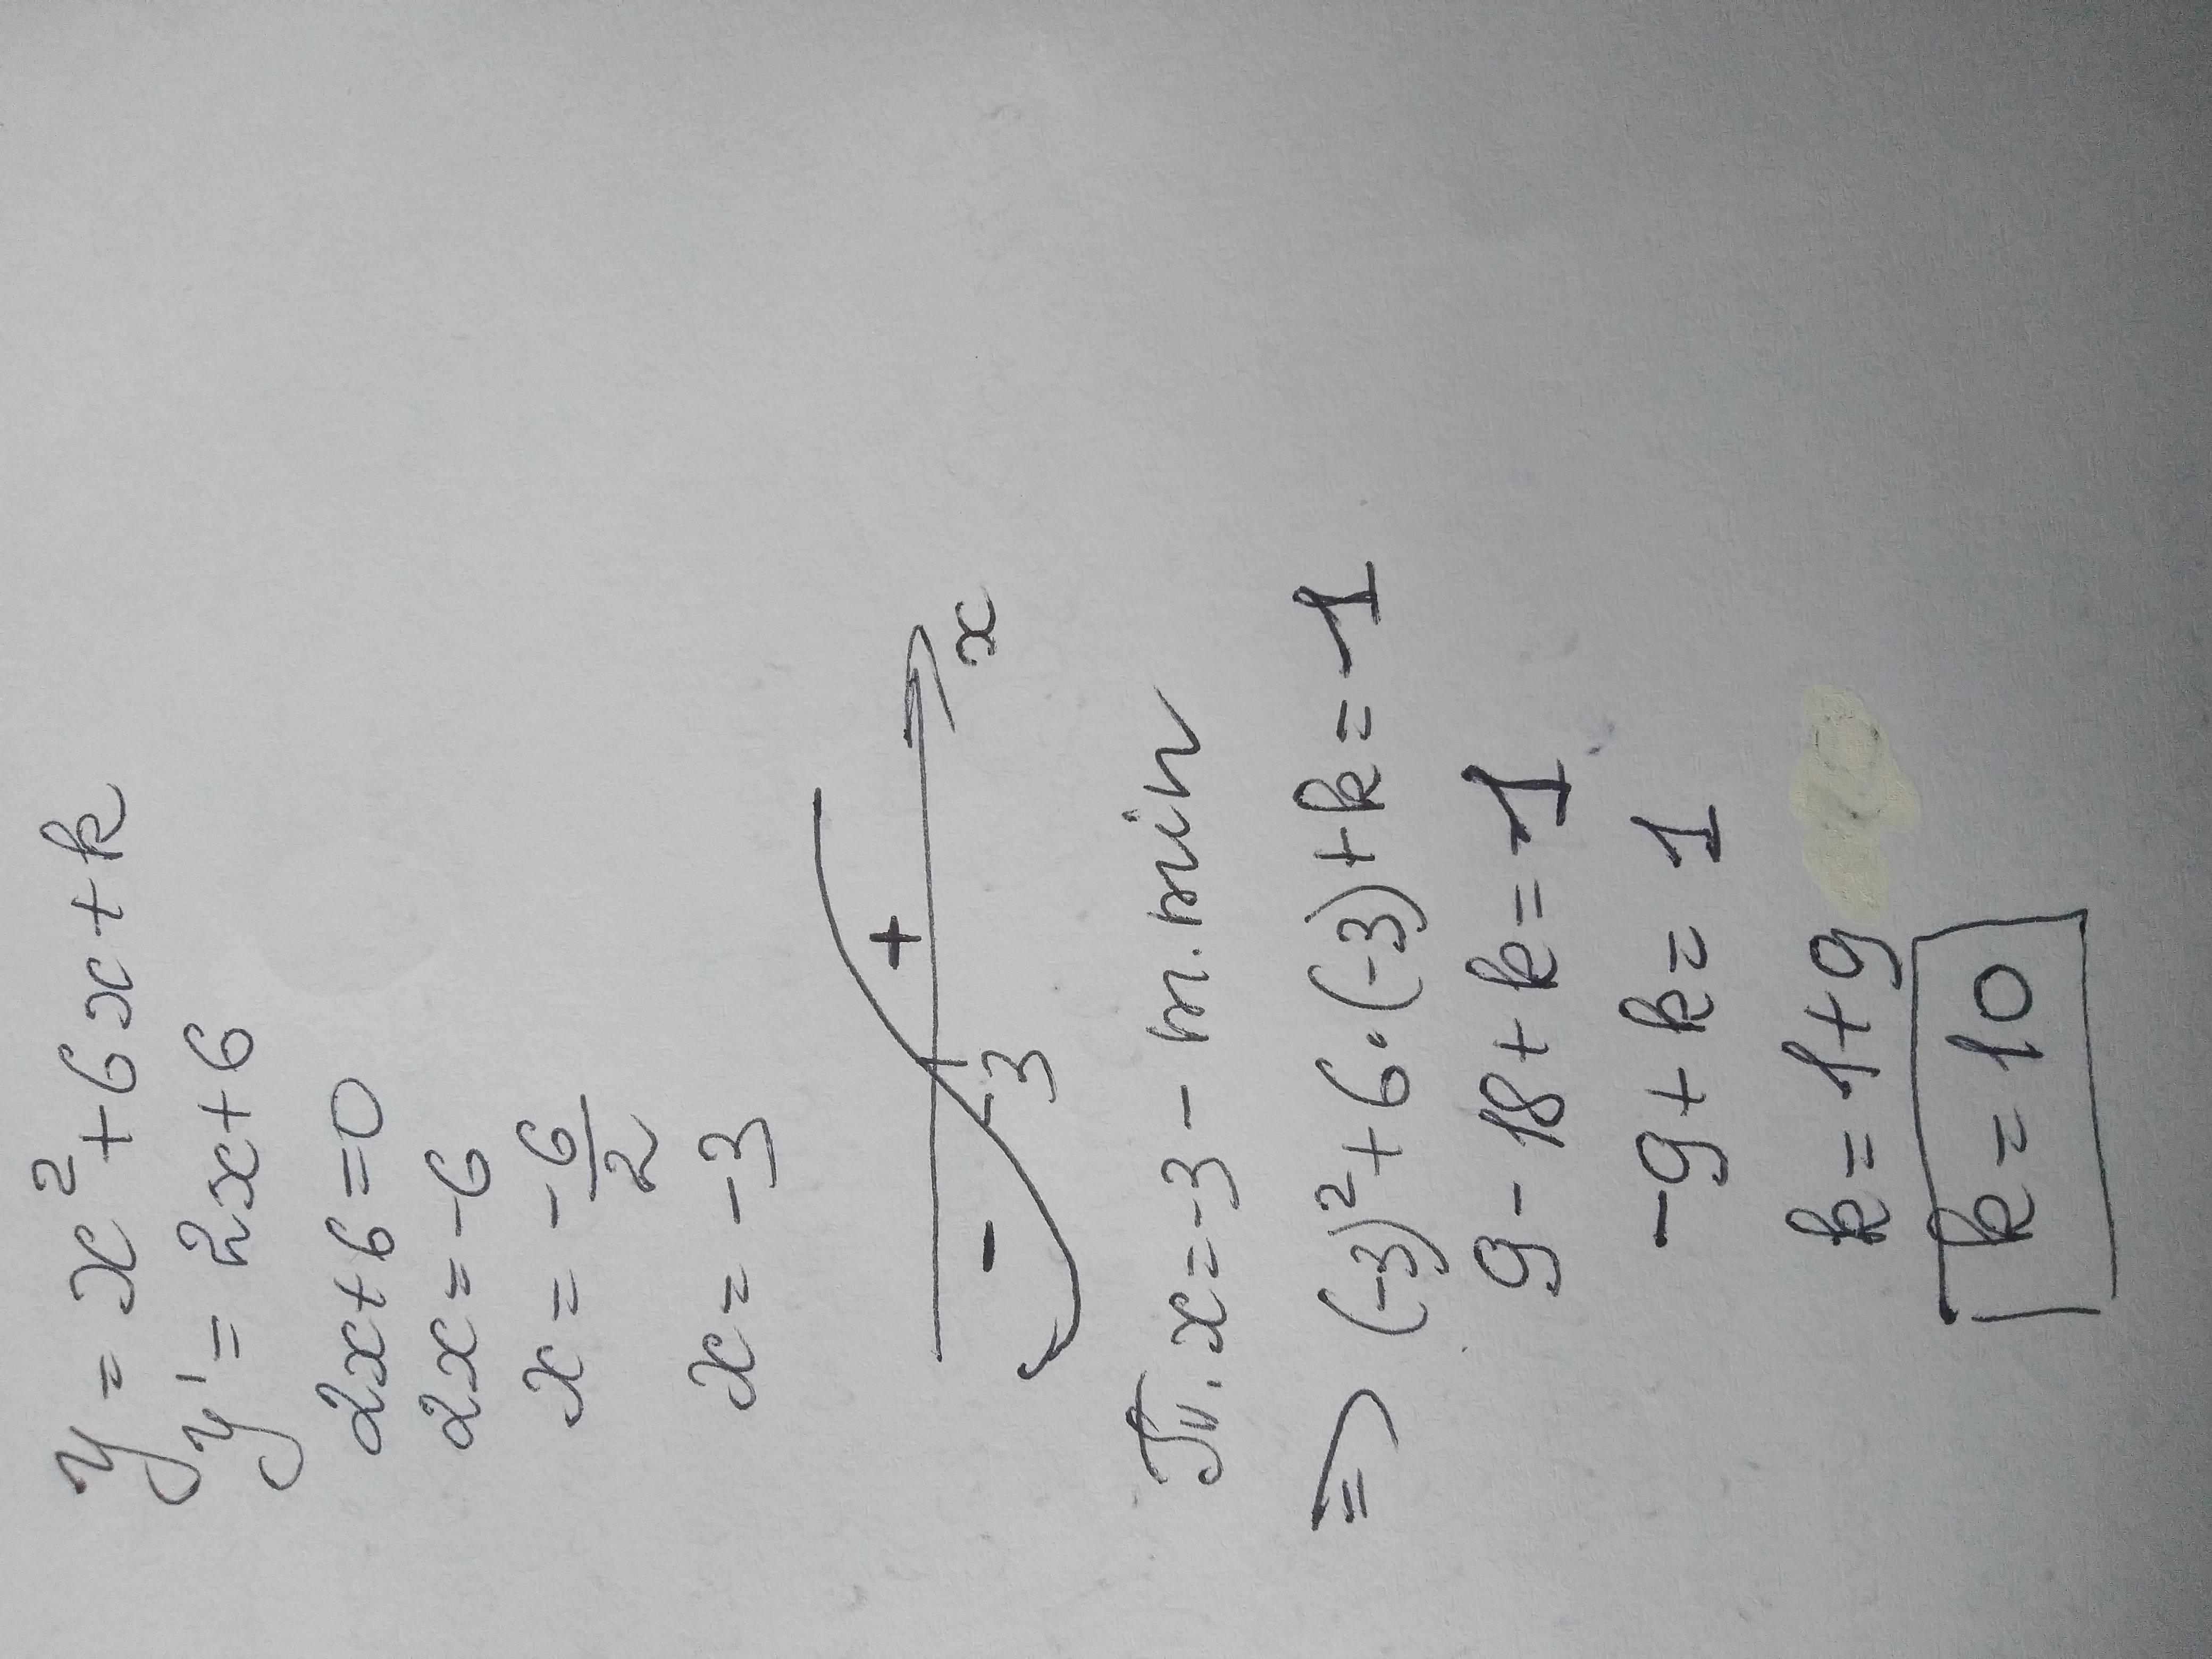 y = x² + 6x + k
y' = 2x + 6
2x + 6 = 0
2x = -6
x = -6/2
x = -3
- +
-3 x
x = -3 - m.min
=> (-3)² + 6·(-3) + k = -1
9 - 18 + k = -1
-9 + k = 1
k = 1 + 9
k = 10